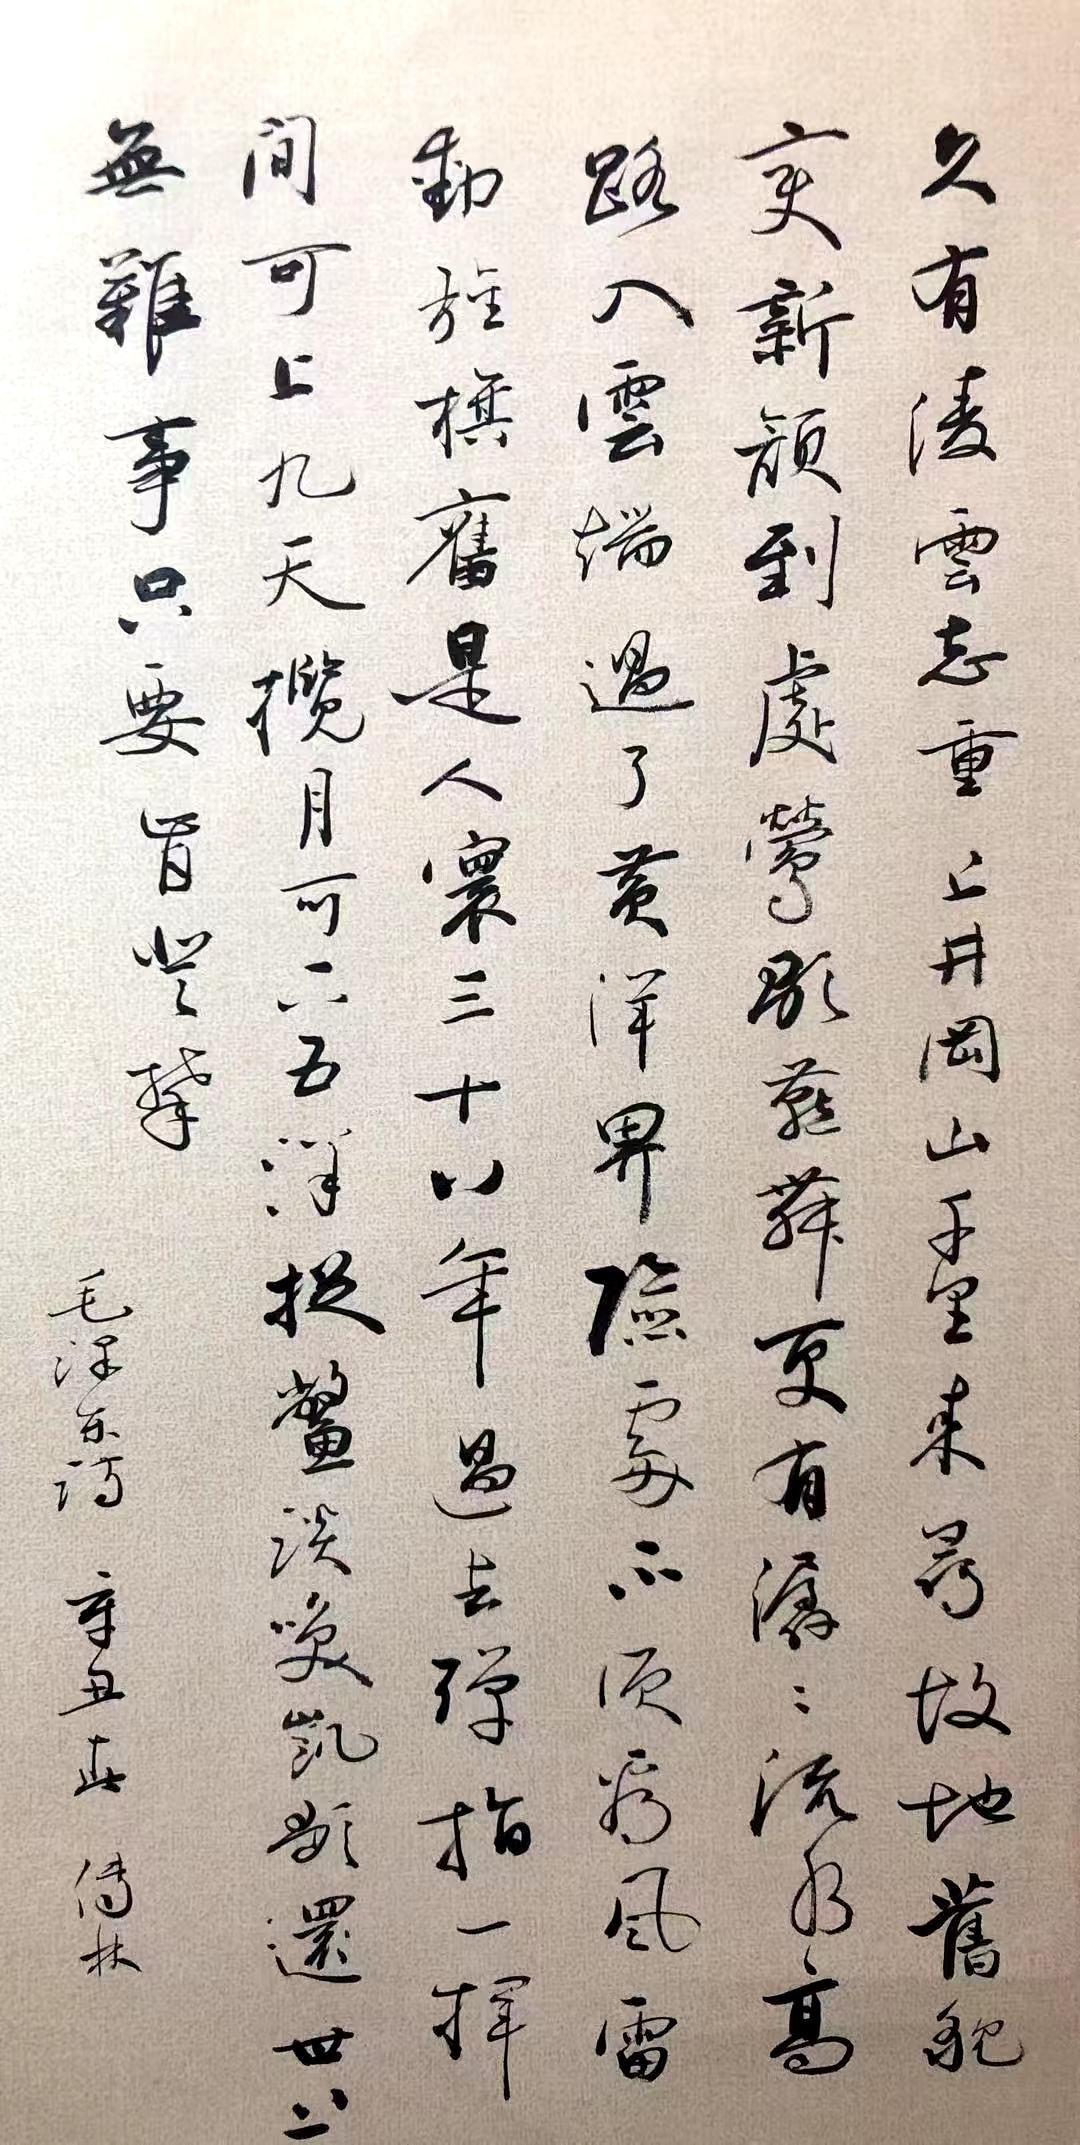 久有淩雲志重上井岡山千里来尋故地舊貌
变新顏到處鶯歌燕舞更有潺〻流水高
路入雲端過了黃洋界險處不須看風雷
動旌旗奮是人寰三十八年過去彈指一揮
間可上九天攬月可下五洋捉鱉談唤凱歌還世上
無難事只要肯登攀
毛泽东诗 辛丑春 傳林